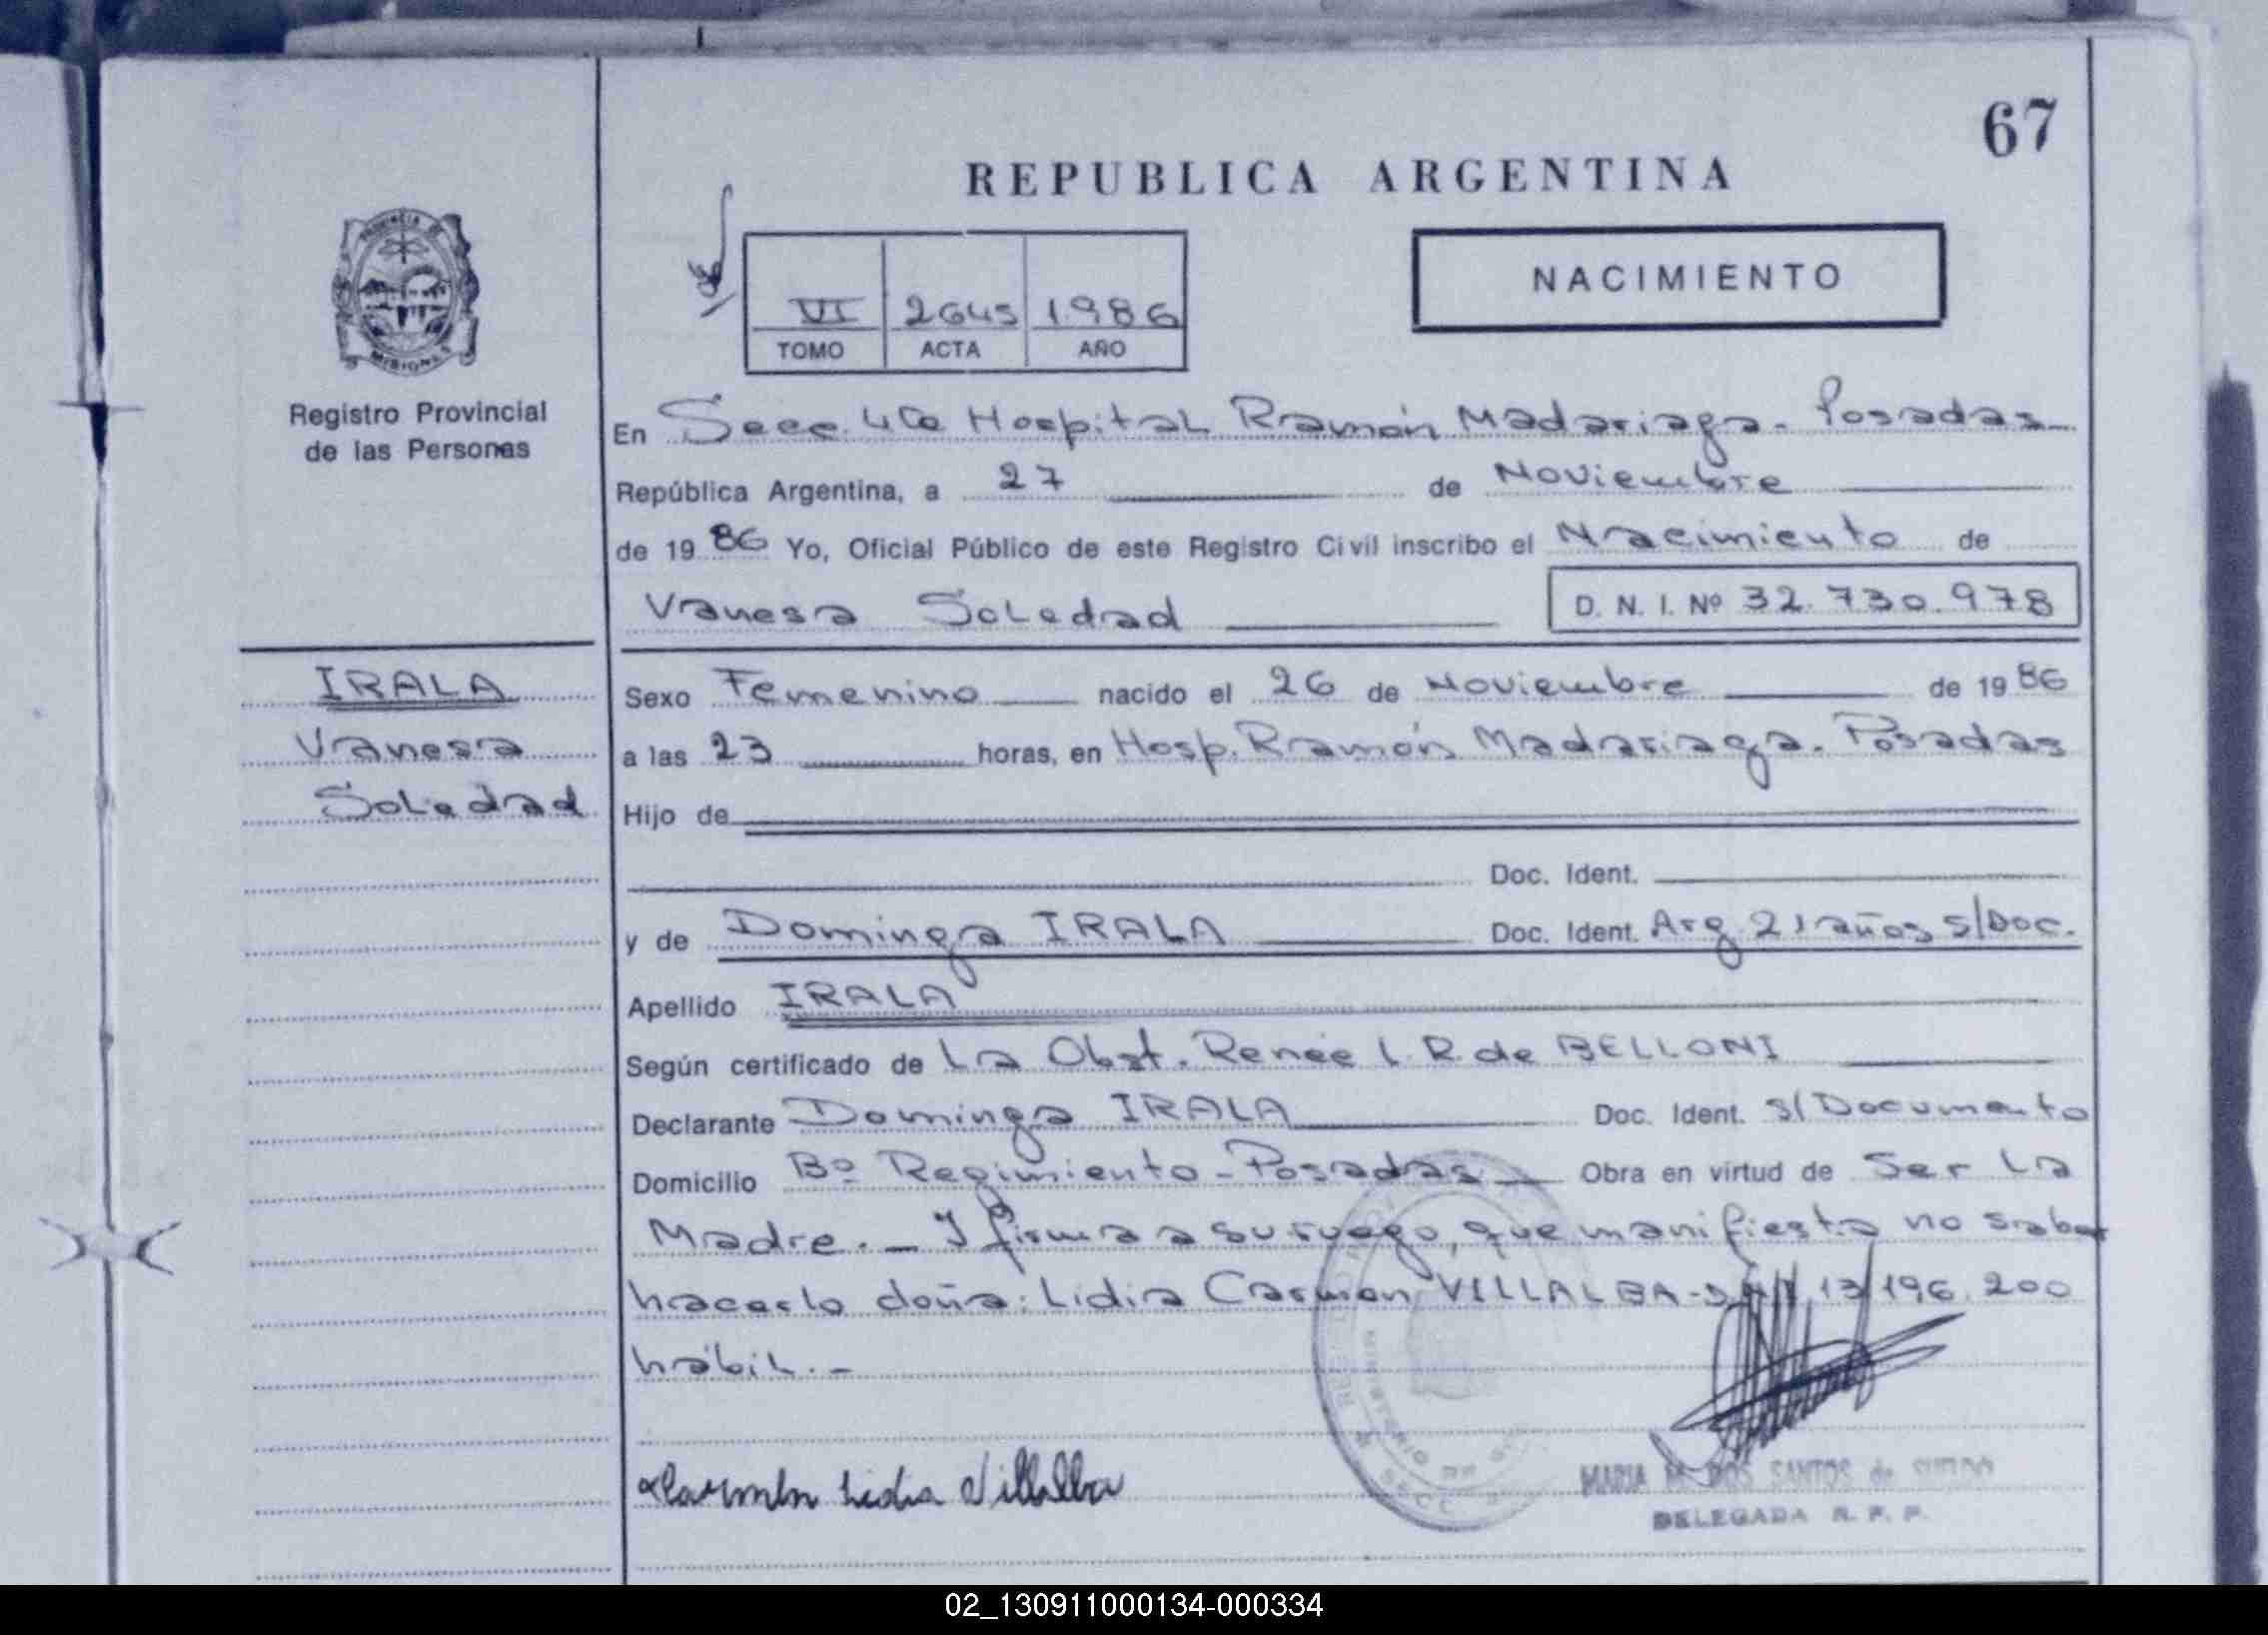 67
REPUBLICA ARGENTINA
NACIMIENTO
VI 2645 1986
TOMO ACTA AÑO
PROVINCIA DE
MISIONES
Registro Provincial
de las Personas
En Secc. 4ta Hospital Ramón Madariaga. Posadas
República Argentina, a 27 de Noviembre
de 1986 Yo, Oficial Público de este Registro Civil inscribo el Nacimiento de
Vanesa Soledad D. N. I. Nº 32.730.978
IRALA
Vanesa
Soledad
Sexo Femenino nacido el 26 de Noviembre de 1986
a las 23 horas, en Hosp. Ramón Madariaga. Posadas
Hijo de
Doc. Ident.
y de Dominga IRALA Doc. Ident. Arg. 21 años s/Doc.
Apellido IRALA
Según certificado de La Obst. Renée L. R. de BELLONI
Declarante Dominga IRALA Doc. Ident. s/Documento
Domicilio Bº Regimiento - Posadas Obra en virtud de Ser La
Madre. - Y firma a su ruego, que manifiesta no saber
hacerlo doña: Lidia Carmen VILLALBA - 13.196.200
hábil. -
Carmen Lidia Villalba
MARIA M. DOS SANTOS de
DELEGADA R. P. P.
02_130911000134-000334